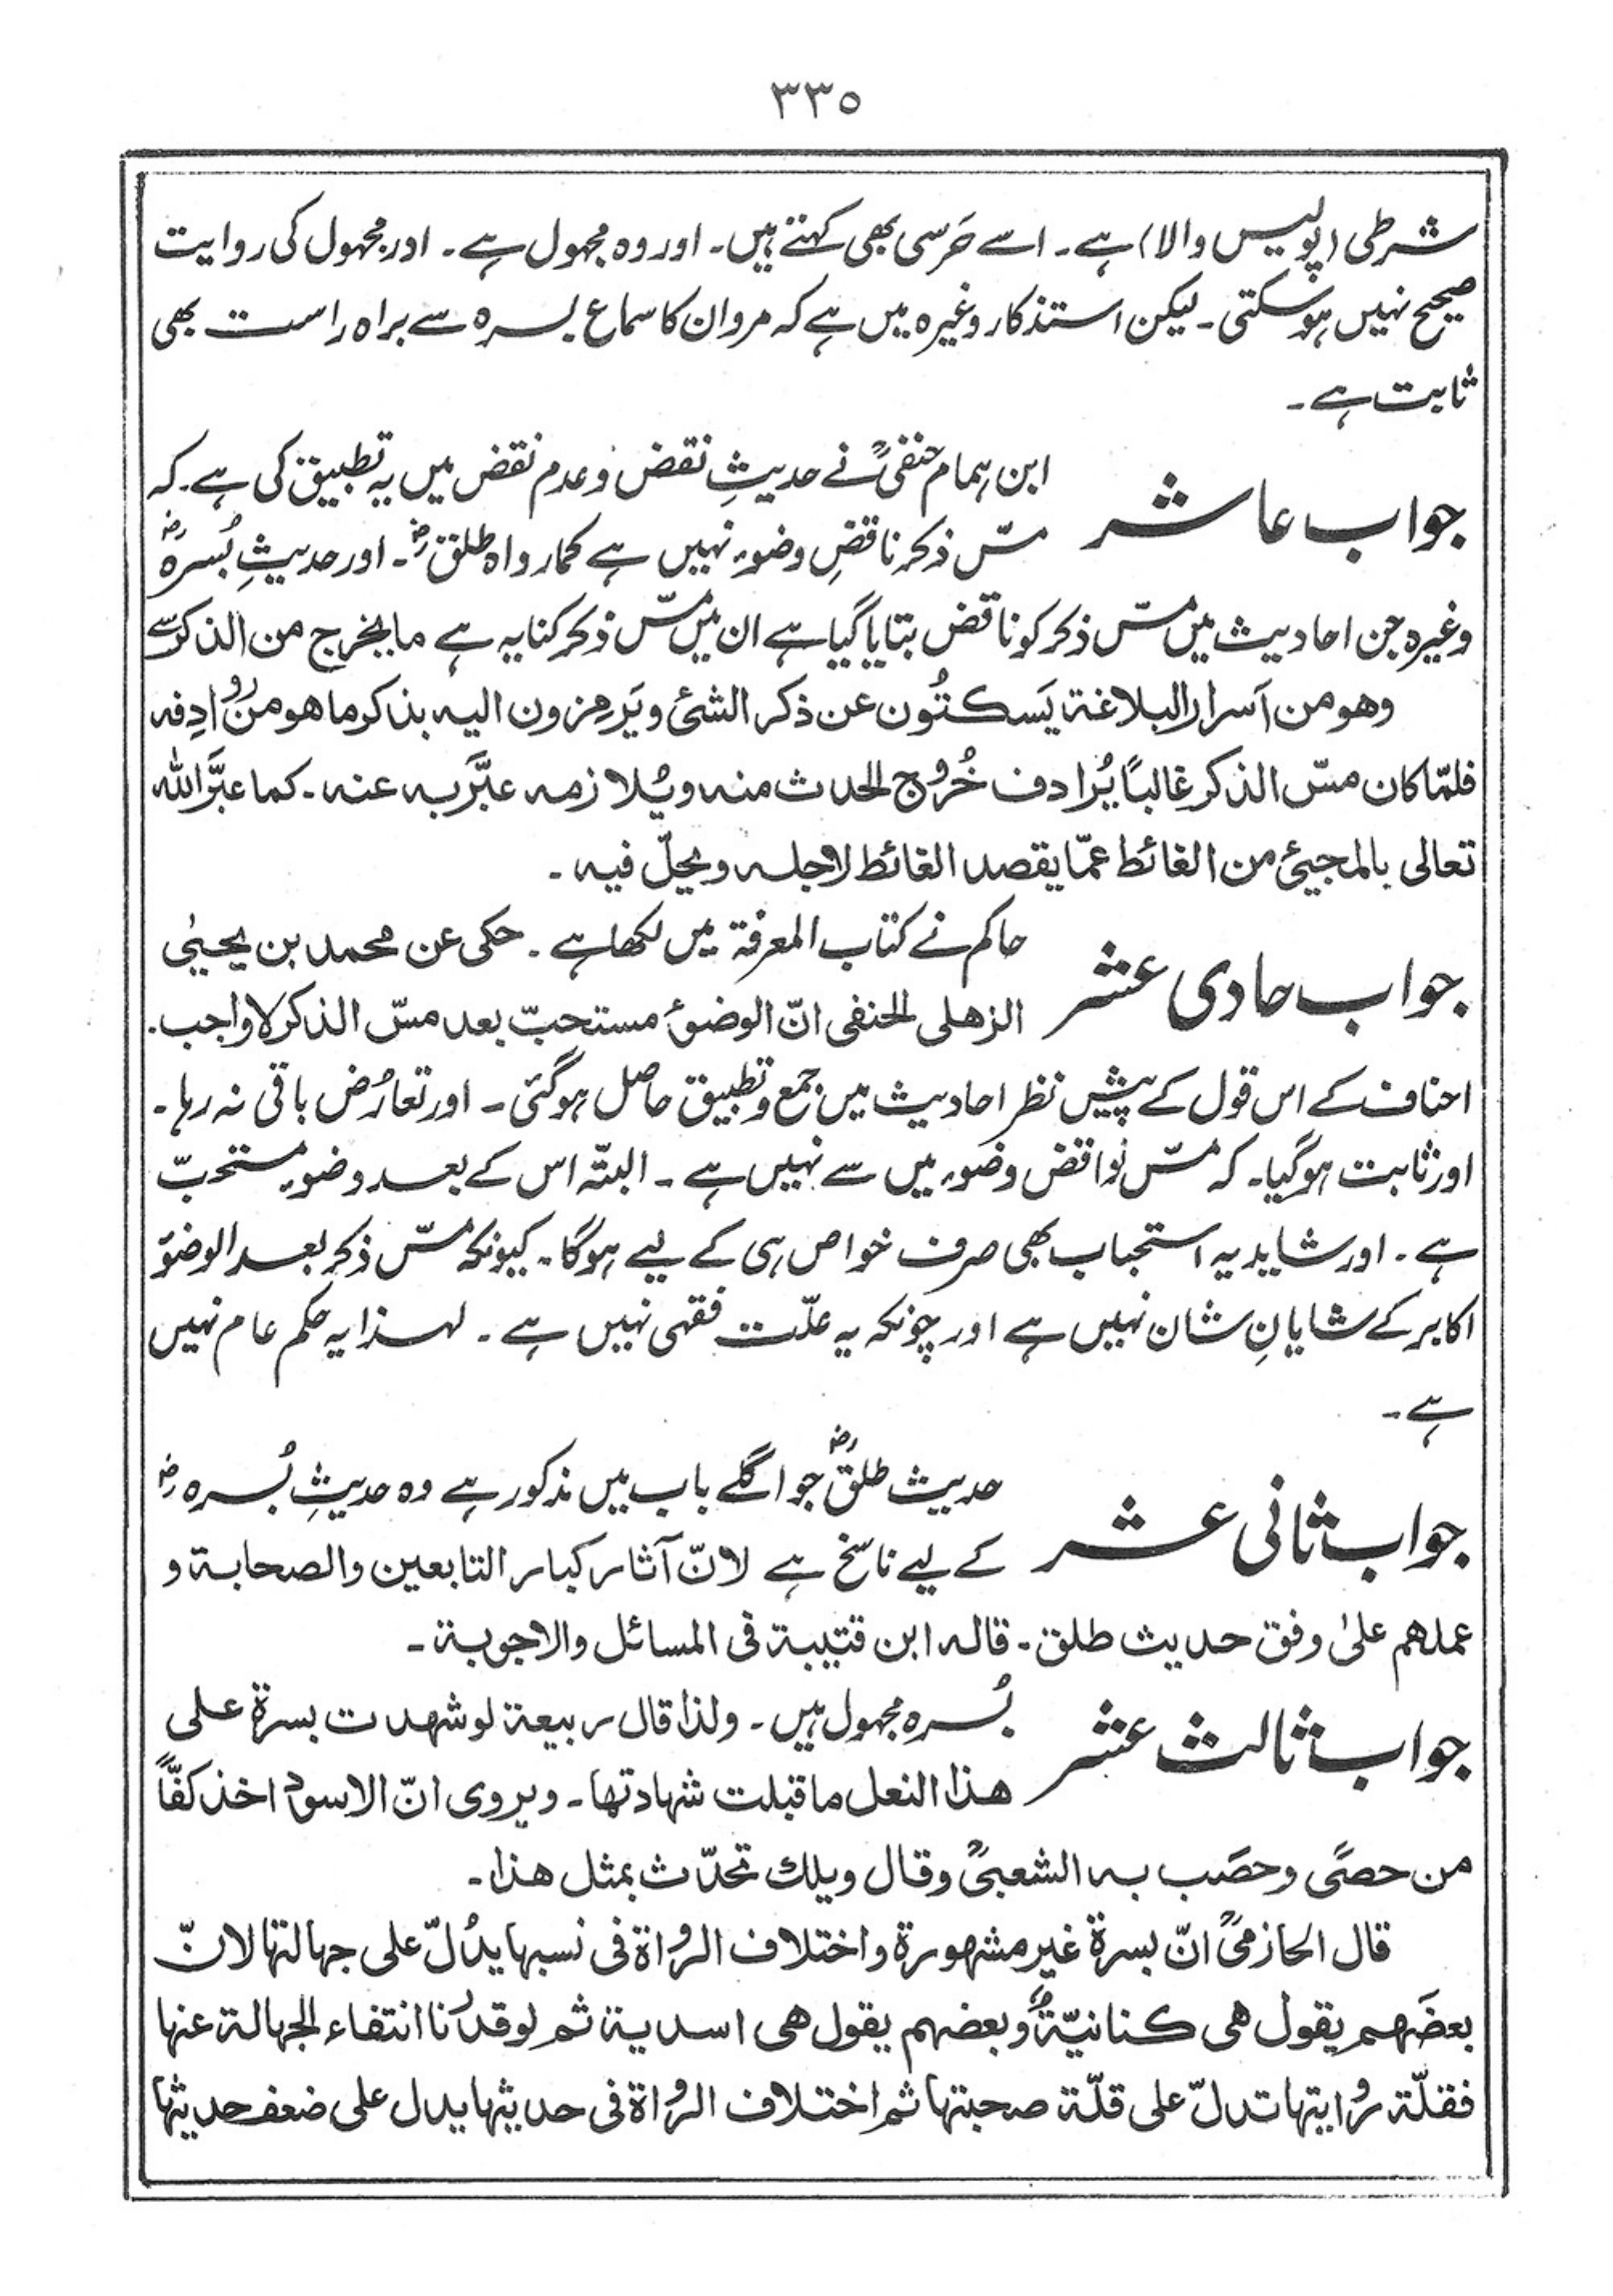 ٣٣٥
شرطی (پولیس والا) ہے۔ اسے حَرسی بھی کہتے ہیں۔ اور وہ مجہول ہے۔ اور مجہول کی روایت
صحیح نہیں ہوسکتی۔ لیکن استذکار وغیرہ میں ہے کہ مروان کا سماع بسرہ سے براہ راست بھی
ثابت ہے۔
جواب عاشر
ابن ہمام حنفیؒ نے حدیثِ نقض و عدم نقض میں یہ تطبیق کی ہے۔ کہ
مسّ ذکر ناقضِ وضوء نہیں ہے کمار واہ طلقؓ۔ اور حدیثِ بُسرہؓ
وغیرہ جن احادیث میں مسّ ذکر کو ناقض بتایا گیا ہے ان میں مسّ ذکر کنایہ ہے ما یخرج من الذکر سے
وھو من اَسرار البلاغة یَسکتُون عن ذکر الشئ ویَرمزون الیہ بذکر ما ھو من رَوادِفہ
فلمّا کان مسّ الذکر غالبًا یُرادف خُرُوج الحدث منہ ویُلازمہ عبَّر بہ عنہ۔ کما عبَّر اللہ
تعالی بالمجیئ من الغائط عمّا یقصد الغائط لاجلہ ویحلّ فیہ۔
جواب حادی عشر
حاکم نے کتاب المعرفة میں لکھا ہے۔ حکی عن محمد بن یحییٰ
الزھلی الحنفی انّ الوضوءَ مستحبّ بعد مسّ الذکر لا واجب۔
احناف کے اس قول کے پیش نظر احادیث میں جمع و تطبیق حاصل ہوگئی۔ اور تعارُض باقی نہ رہا۔
اور ثابت ہوگیا۔ کہ مسّ نواقض وضوء میں سے نہیں ہے۔ البتّہ اس کے بعد وضوء مستحبّ
ہے۔ اور شاید یہ استحباب بھی صرف خواص ہی کے لیے ہوگا۔ کیونکہ مسّ ذکر بعد الوضوء
اکابر کے شایانِ شان نہیں ہے اور چونکہ یہ علّت فقہی نہیں ہے۔ لہذا یہ حکم عام نہیں
ہے۔
جواب ثانی عشر
حدیث طلقؓ جو اگلے باب میں مذکور ہے وہ حدیثِ بُسرہؓ
کے لیے ناسخ ہے لانّ آثار کبار التابعین والصحابة و
عملھم علیٰ وفق حدیث طلق۔ قالہ ابن قتیبة فی المسائل والاجوبة۔
جواب ثالث عشر
بُسرہ مجہول ہیں۔ ولذا قال ربیعة لو شھدت بسرة علی
ھذا النعل ما قبلت شہادتھا۔ ویروی انّ الاسود اخذ کفًّا
من حصًی وحصَب بہ الشعبیؒ وقال ویلك تحدّث بمثل ھذا۔
قال الحازمیؒ انّ بسرة غیر مشھورة واختلاف الرُواة فی نسبھا یدُلّ علی جہالتھا لانّ
بعضَھم یقول ھی کنانیّةؓ وبعضہم یقول ھی اسدیة ثم لو قدّرنا انتفاء الجہالة عنہا
فقلّة رُوایتھا تدلّ علی قلّة صحبتھا ثم اختلاف الرُواة فی حدیثھا یدل علی ضعف حدیثھا